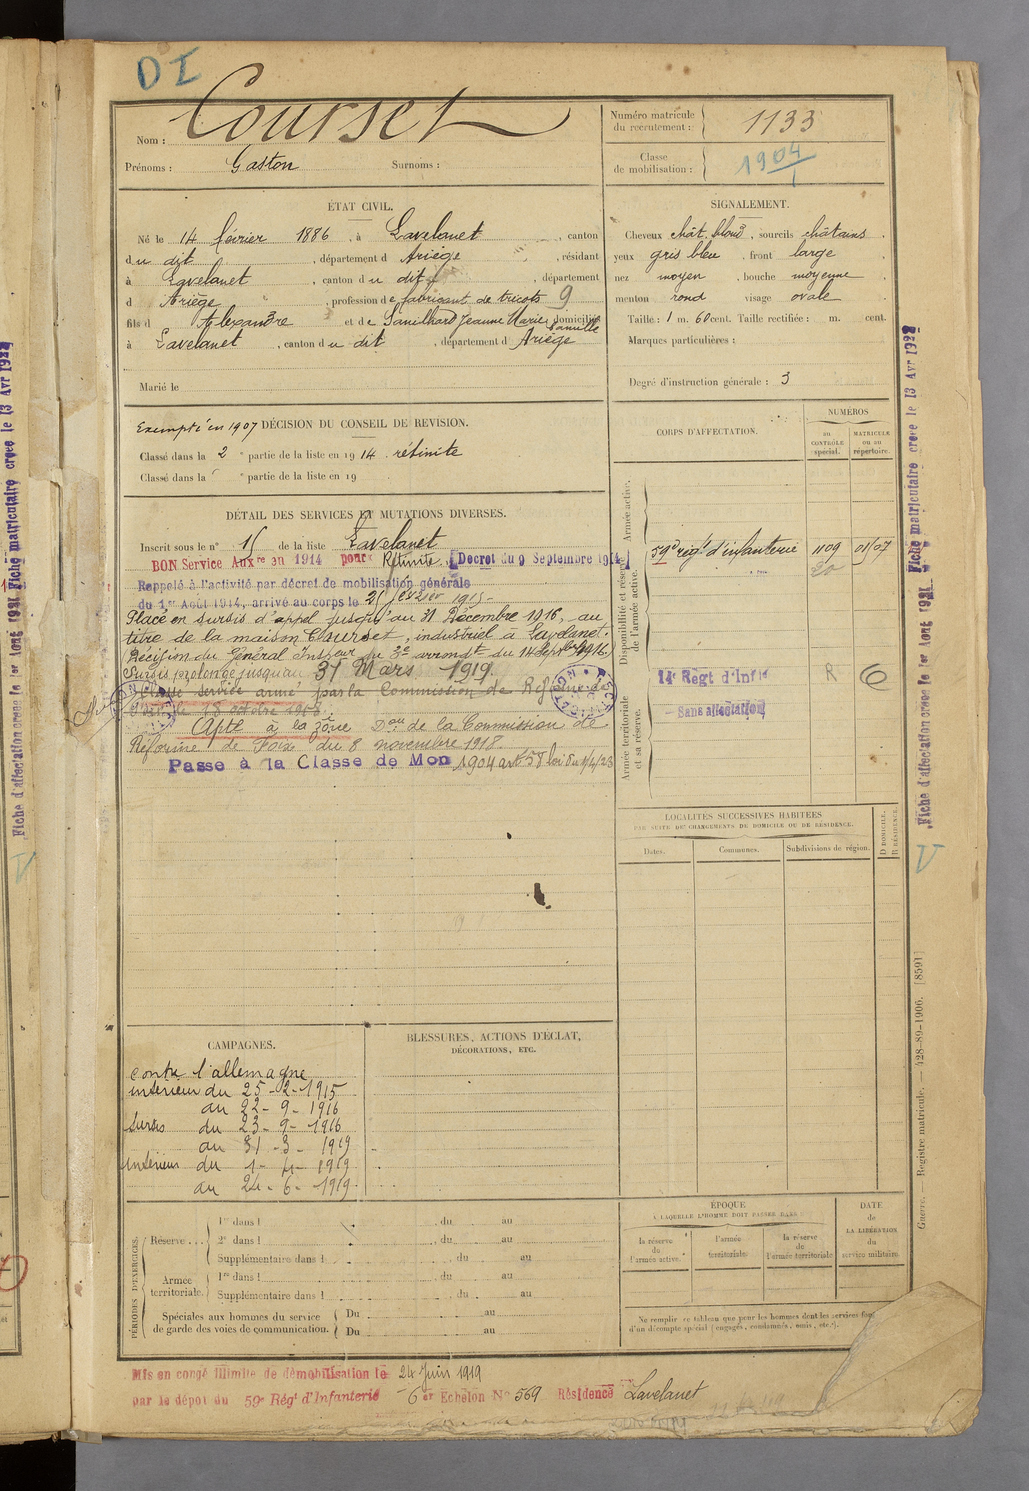 DI
Nom : Courset
Prénoms : Gaston Surnoms :
Numéro matricule du recrutement : 1133
Classe de mobilisation : 1904
ÉTAT CIVIL.
Né le 14 février 1886, à Lavelanet, canton
du dit, département d Ariège, résidant
à Lavelanet, canton du dit, département
d Ariège, profession de fabricant de tricots 9
fils d Alexandre et de Sanilhard Jeanne Marie Camille domicilié
à Lavelanet, canton du dit, département d Ariège
Marié le
SIGNALEMENT.
Cheveux chât. blond, sourcils châtains
yeux gris bleu, front large
nez moyen, bouche moyenne
menton rond visage ovale
Taille : 1 m. 60 cent. Taille rectifiée : m. cent.
Marques particulières :
Degré d'instruction générale : 3
Exempté en 1907 DÉCISION DU CONSEIL DE REVISION.
Classé dans la 2e partie de la liste en 1914. rétinite
Classé dans la e partie de la liste en 19
DÉTAIL DES SERVICES ET MUTATIONS DIVERSES.
Inscrit sous le n° 15 de la liste Lavelanet
BON Service Auxre en 1914 pour Rétinite. [Décret du 9 Septembre 1914]
Rappelé à l'activité par décret de mobilisation générale
du 1er Août 1914, arrivé au corps le 25 février 1915-
Placé en sursis d'appel jusqu'au 31 Décembre 1916, au
titre de la maison Courset, industriel à Lavelanet.
Décision du Général Inspeur du 3e arrondt du 14 Septbre 1916.
Sursis prolongé jusqu'au 31 Mars 1919.
Classé service armé par la Commission de Réforme
18 octobre 1918.
Apte à la zône Don de la Commission de
Réforme de Foix du 8 novembre 1918.
Passe à la Classe de Mon 1904 art 58 loi du 1/4/23
CORPS D'AFFECTATION.
NUMÉROS
au CONTRÔLE spécial.
MATRICULE ou au répertoire.
Armée active.
Disponibilité et réserve de l'armée active.
59e régt d'infanterie 1109 01107
Armée territoriale et sa réserve.
14e Régt d'Infie R
Sans affectation
LOCALITÉS SUCCESSIVES HABITÉES
PAR SUITE DE CHANGEMENTS DE DOMICILE OU DE RÉSIDENCE.
Dates. Communes. Subdivisions de région. D DOMICILE. R RÉSIDENCE.
CAMPAGNES.
contre l'allemagne
intérieur du 25-2-1915
au 22-9-1916
Sursis du 23-9-1916
au 31-3-1919
intérieur du 1-4-1919
au 24-6-1919
BLESSURES, ACTIONS D'ÉCLAT,
DÉCORATIONS, ETC.
PÉRIODES D'EXERCICES.
Réserve... 1re dans l du au
2e dans l du au
Supplémentaire dans l du au
Armée territoriale. 1re dans l du au
Supplémentaire dans l du au
Spéciales aux hommes du service de garde des voies de communication.
Du au
Du au
ÉPOQUE
À LAQUELLE L'HOMME DOIT PASSER DANS :
la réserve de l'armée active.
l'armée territoriale.
la réserve de l'armée territoriale
DATE de LA LIBÉRATION du service militaire.
Ne remplir ce tableau que pour les hommes dont les services font
d'un décompte spécial (engagés, condamnés, omis, etc.).
Mis en congé illimité de démobilisation le 24 Juin 1919
par le dépôt du 59e Régt d'Infanterie 6er Echelon N° 569 Résidence Lavelanet
Fiche matriculaire créée le 13 Avr 1922
Fiche d'affectation créée le 1er Août 1921
V
Guerre. — Registre matricule. — 428-89-1906. [8591]
Fiche matriculaire créée le 13 Avr 1922
Fiche d'affectation créée le 1er Août 1921
V